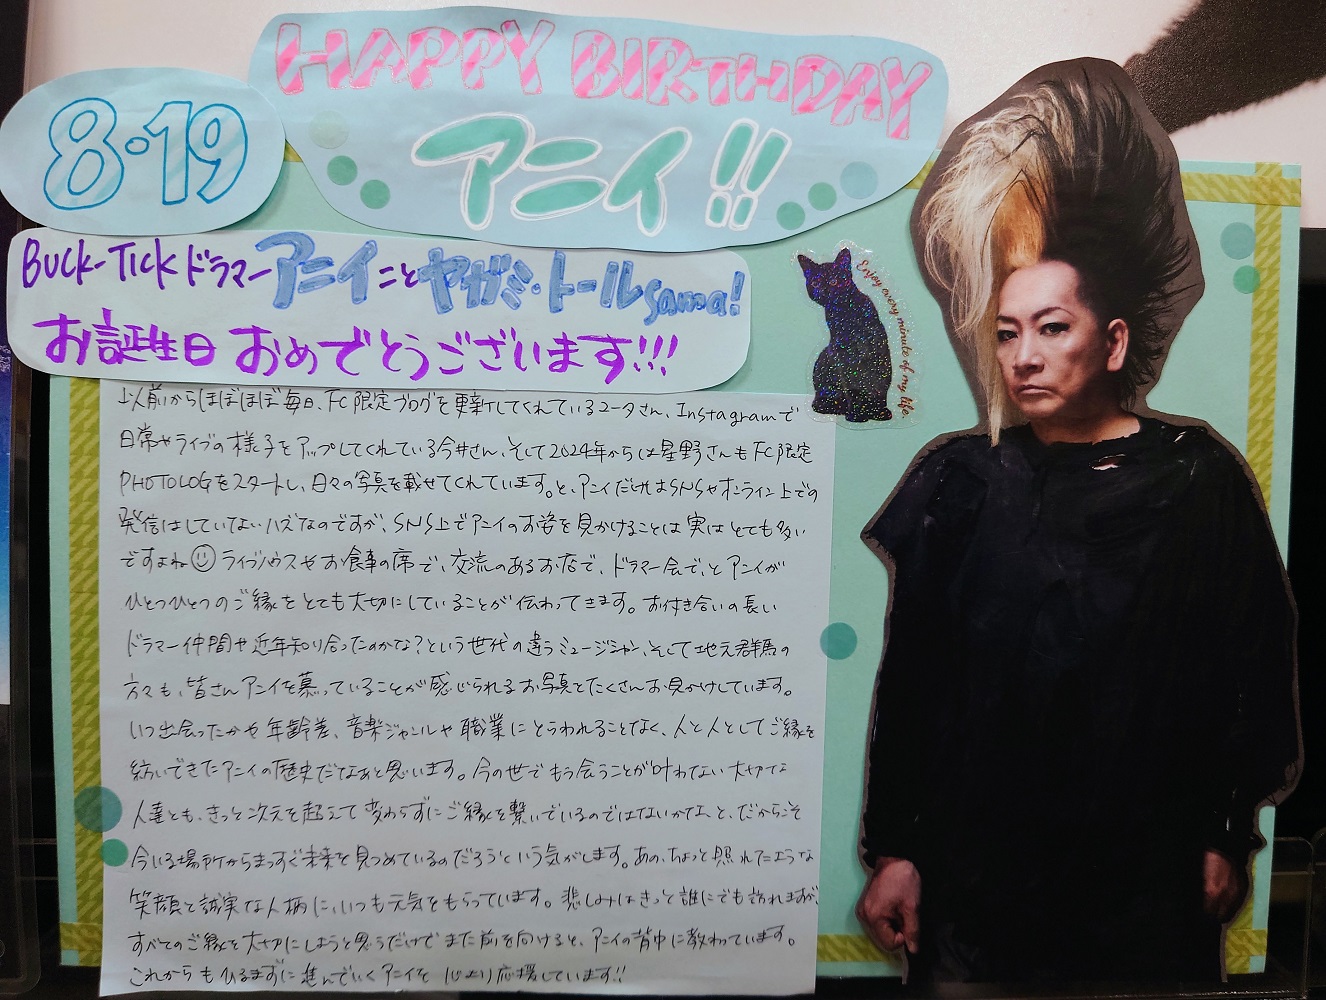 HAPPY BIRTHDAY
アニイ!!
8・19
BUCK-TICKドラマーアニイことヤガミ・トールsama!
お誕生日おめでとうございます!!!
Enjoy every minute of my life.
以前からほぼほぼ毎日、FC限定ブログを更新してくれているユータさん、Instagramで
日常やライブの様子をアップしてくれている今井さん、そして2024年からは星野さんもFC限定
PHOTOLOGをスタートし、日々の写真を載せてくれています。と、アニイだけはSNSやオンライン上での
発信はしていないハズなのですが、SNS上でアニイのお姿を見かけることは実はとても多い
ですよね☺ライブハウスやお食事の席で、交流のあるお店で、ドラマー会で、とアニイが
ひとつひとつのご縁をとても大切にしていることが伝わってきます。お付き合いの長い
ドラマー仲間や近年知り合ったのかな?という世代の違うミュージシャン、そして地元群馬の
方々も、皆さんアニイを慕っていることが感じられるお写真をたくさんお見かけしています。
いつ出会ったかや年齢差、音楽ジャンルや職業にとらわれることなく、人と人としてご縁を
紡いできたアニイの歴史だなぁと思います。今の世でもう会うことが叶わない大切な
人達とも、きっと次元を超えて変わらずにご縁を繋いでいるのではないかな、と、だからこそ
今いる場所からまっすぐ未来を見つめているのだろうという気がします。あの、ちょっと照れたような
笑顔と誠実な人柄に、いつも元気をもらっています。悲しみはきっと誰にでも訪れますが、
すべてのご縁を大切にしようと思うだけでまた前を向けると、アニイの背中に教わっています。
これからもひるまずに進んでいくアニイを心より応援しています!!